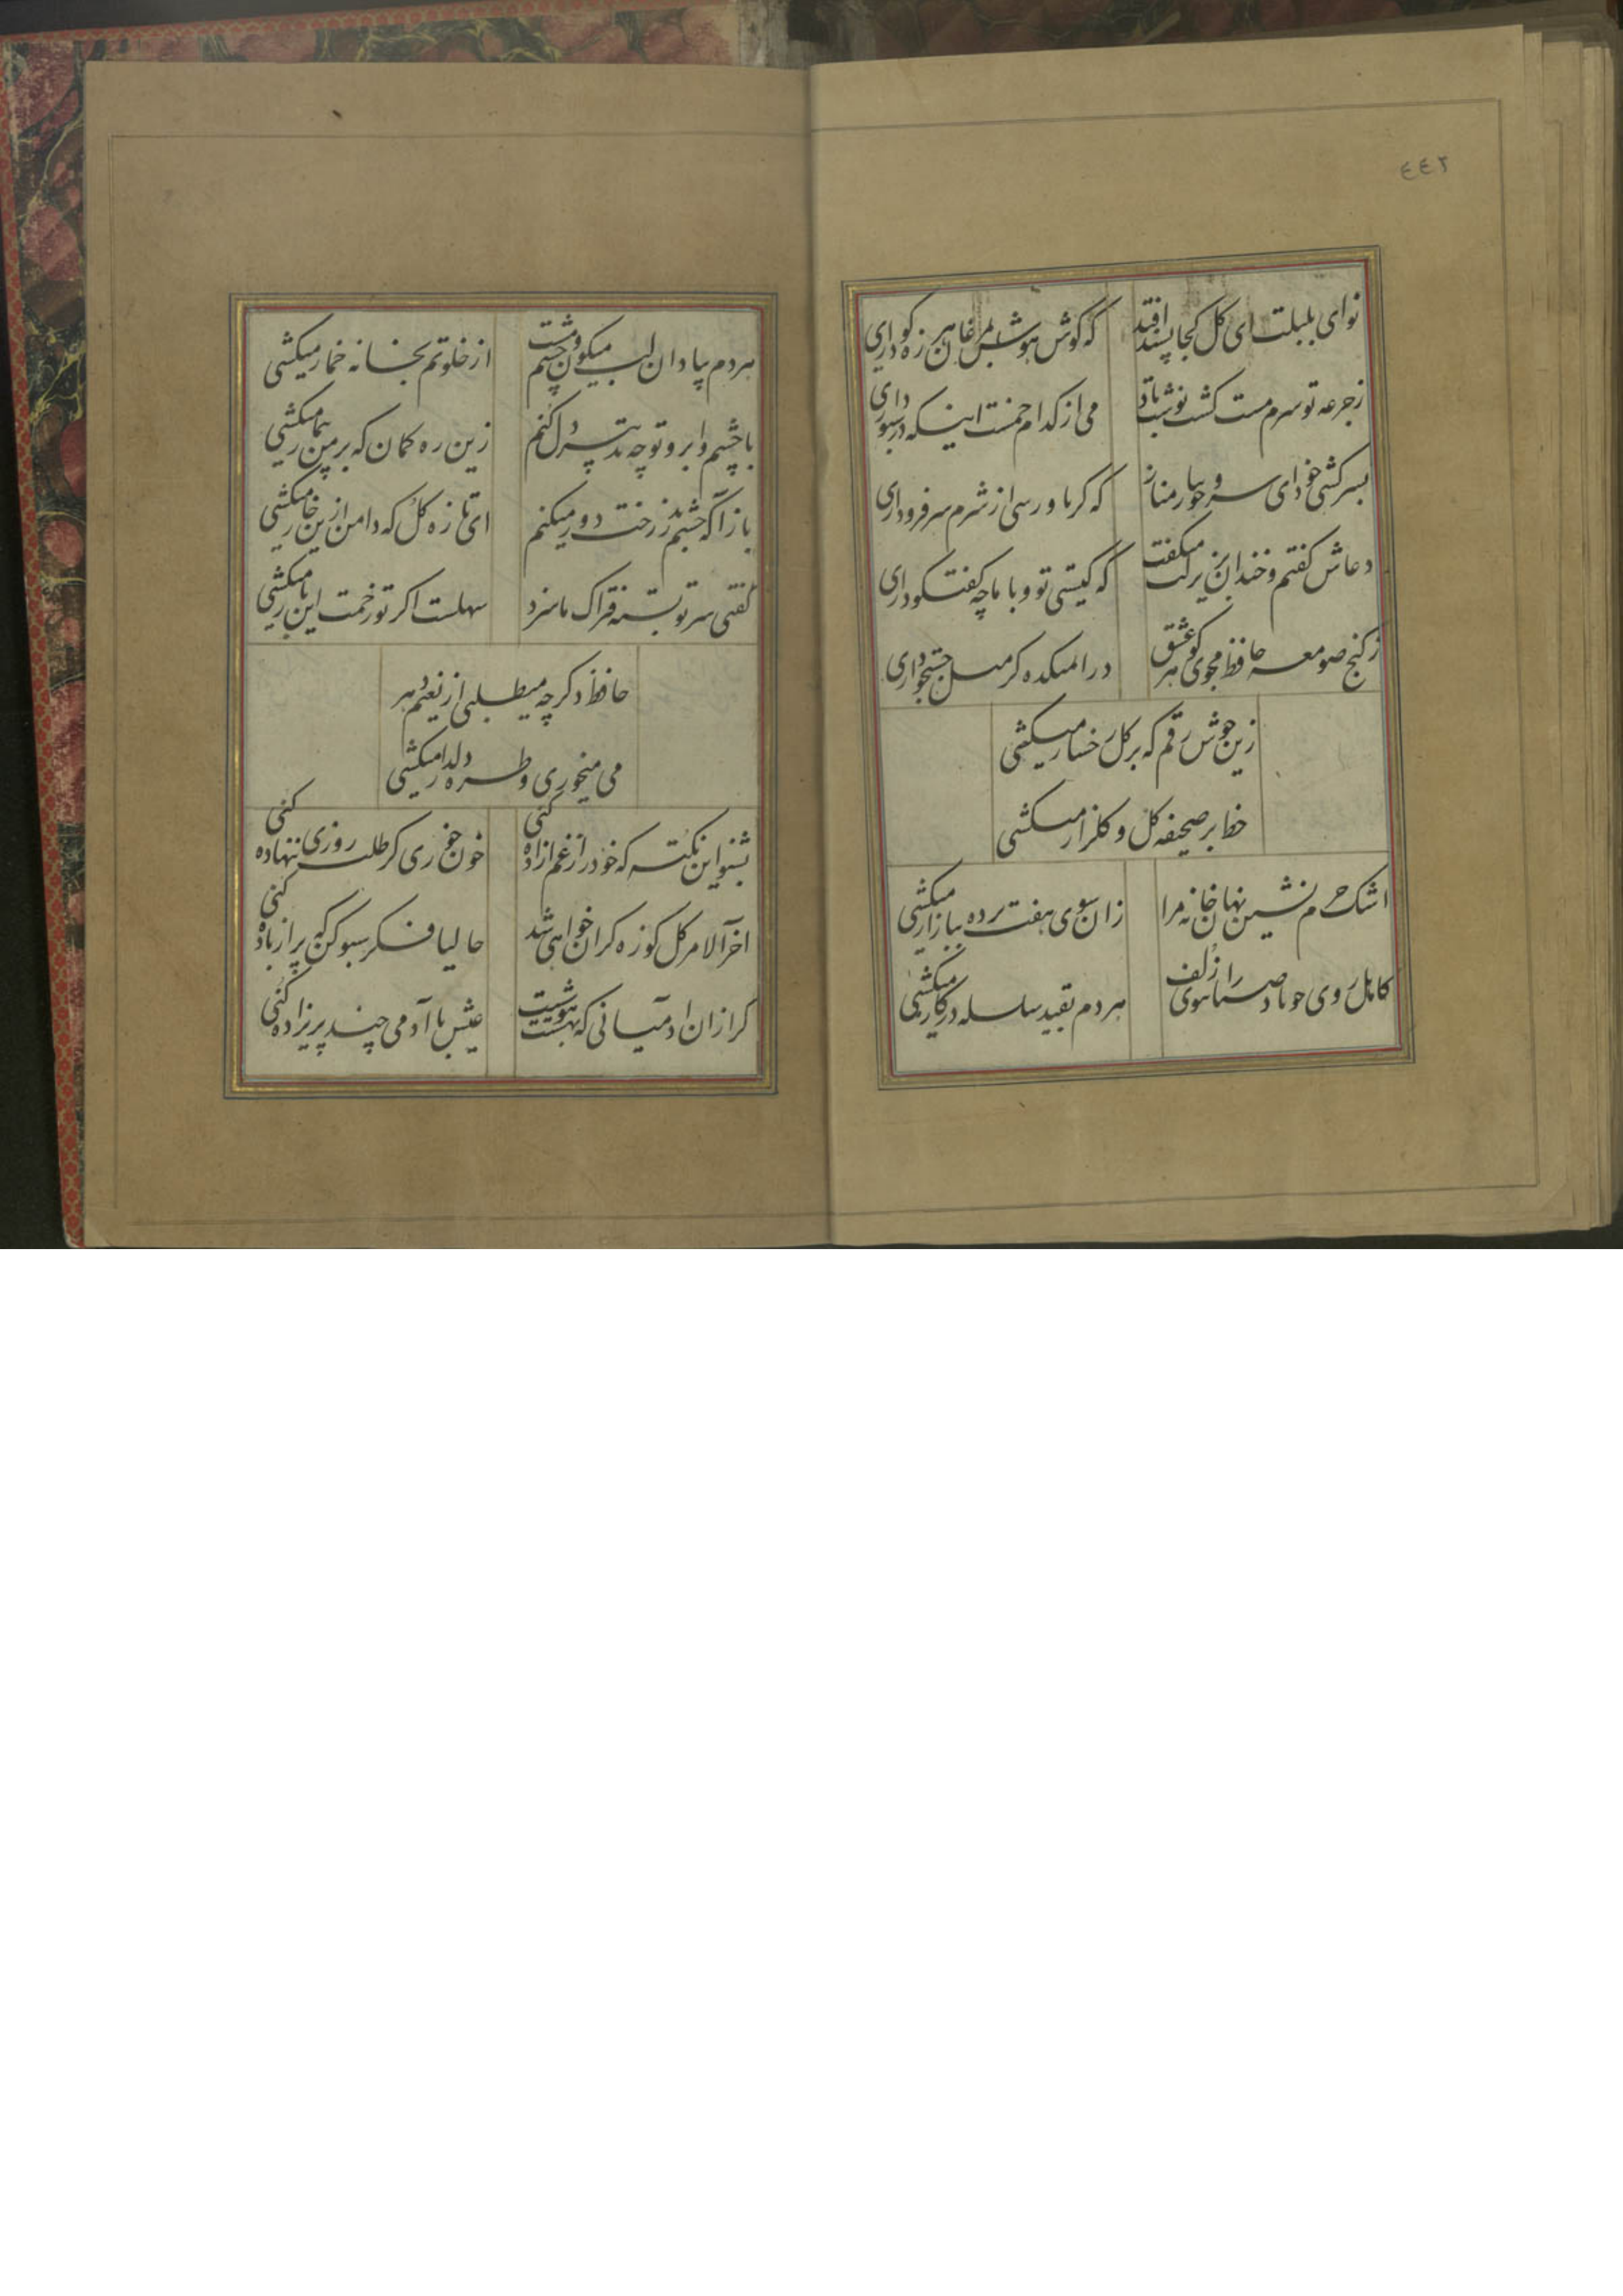 ٤٤٢
نوای بلبلت ای کل کجا پسند افتد
که کوش هوش بمرغان هرزه کو داری
زجرعه تو سرم مست کشت نوشت باد
می از کدام خمست اینکه در سبو داری
بسرکشی خود ای سرو جویبار مناز
که کر باو رسی از شرم سر فرو داری
دعاش کفتم و خندان بزیر لب میکفت
که کیستی تو و با ما چه کفتکو داری
ز کنج صومعه حافظ مجوی کوهر عشق
در ا میکده کر میل جستجو داری
زین خوش رقم که بر کل رخسار میکشی
خط بر صحیفه کل و کلزار میکشی
اشک حرم نشین نهان خانه مرا
زان سوی هفت پرده ببازار میکشی
کاهل روی چو باد صبا را ببوی زلف
هردم بقید سلسله در کار میکشی
هردم بیاد ان لب میکون و چشم مست
از خلوتم بخانه خمار میکشی
با چشم و ابرو تو چه تدبیر دل کنم
زین ره کمان که بر من بیمار میکشی
باز آ که چشم بد ز رخت دور میکنم
ای تازه کل که دامن ازین خار میکشی
کفتی سر تو بسته فتراک ما سزد
سهلست اکر تو زحمت این بار میکشی
حافظ دکر چه میطلبی از نعیم دهر
می میخوری و طره دلدار میکشی
بشنو این نکته که خود را ز غم ازاده کنی
خون خوری کر طلب روزی ننهاده کنی
اخر الامر کل کوزه کران خواهی شد
حالیا فکر سبو کن که پر از باده کنی
کر از ان ادمیانی که بهشتت هوسست
عیش با آدمی چند پریزاده کنی